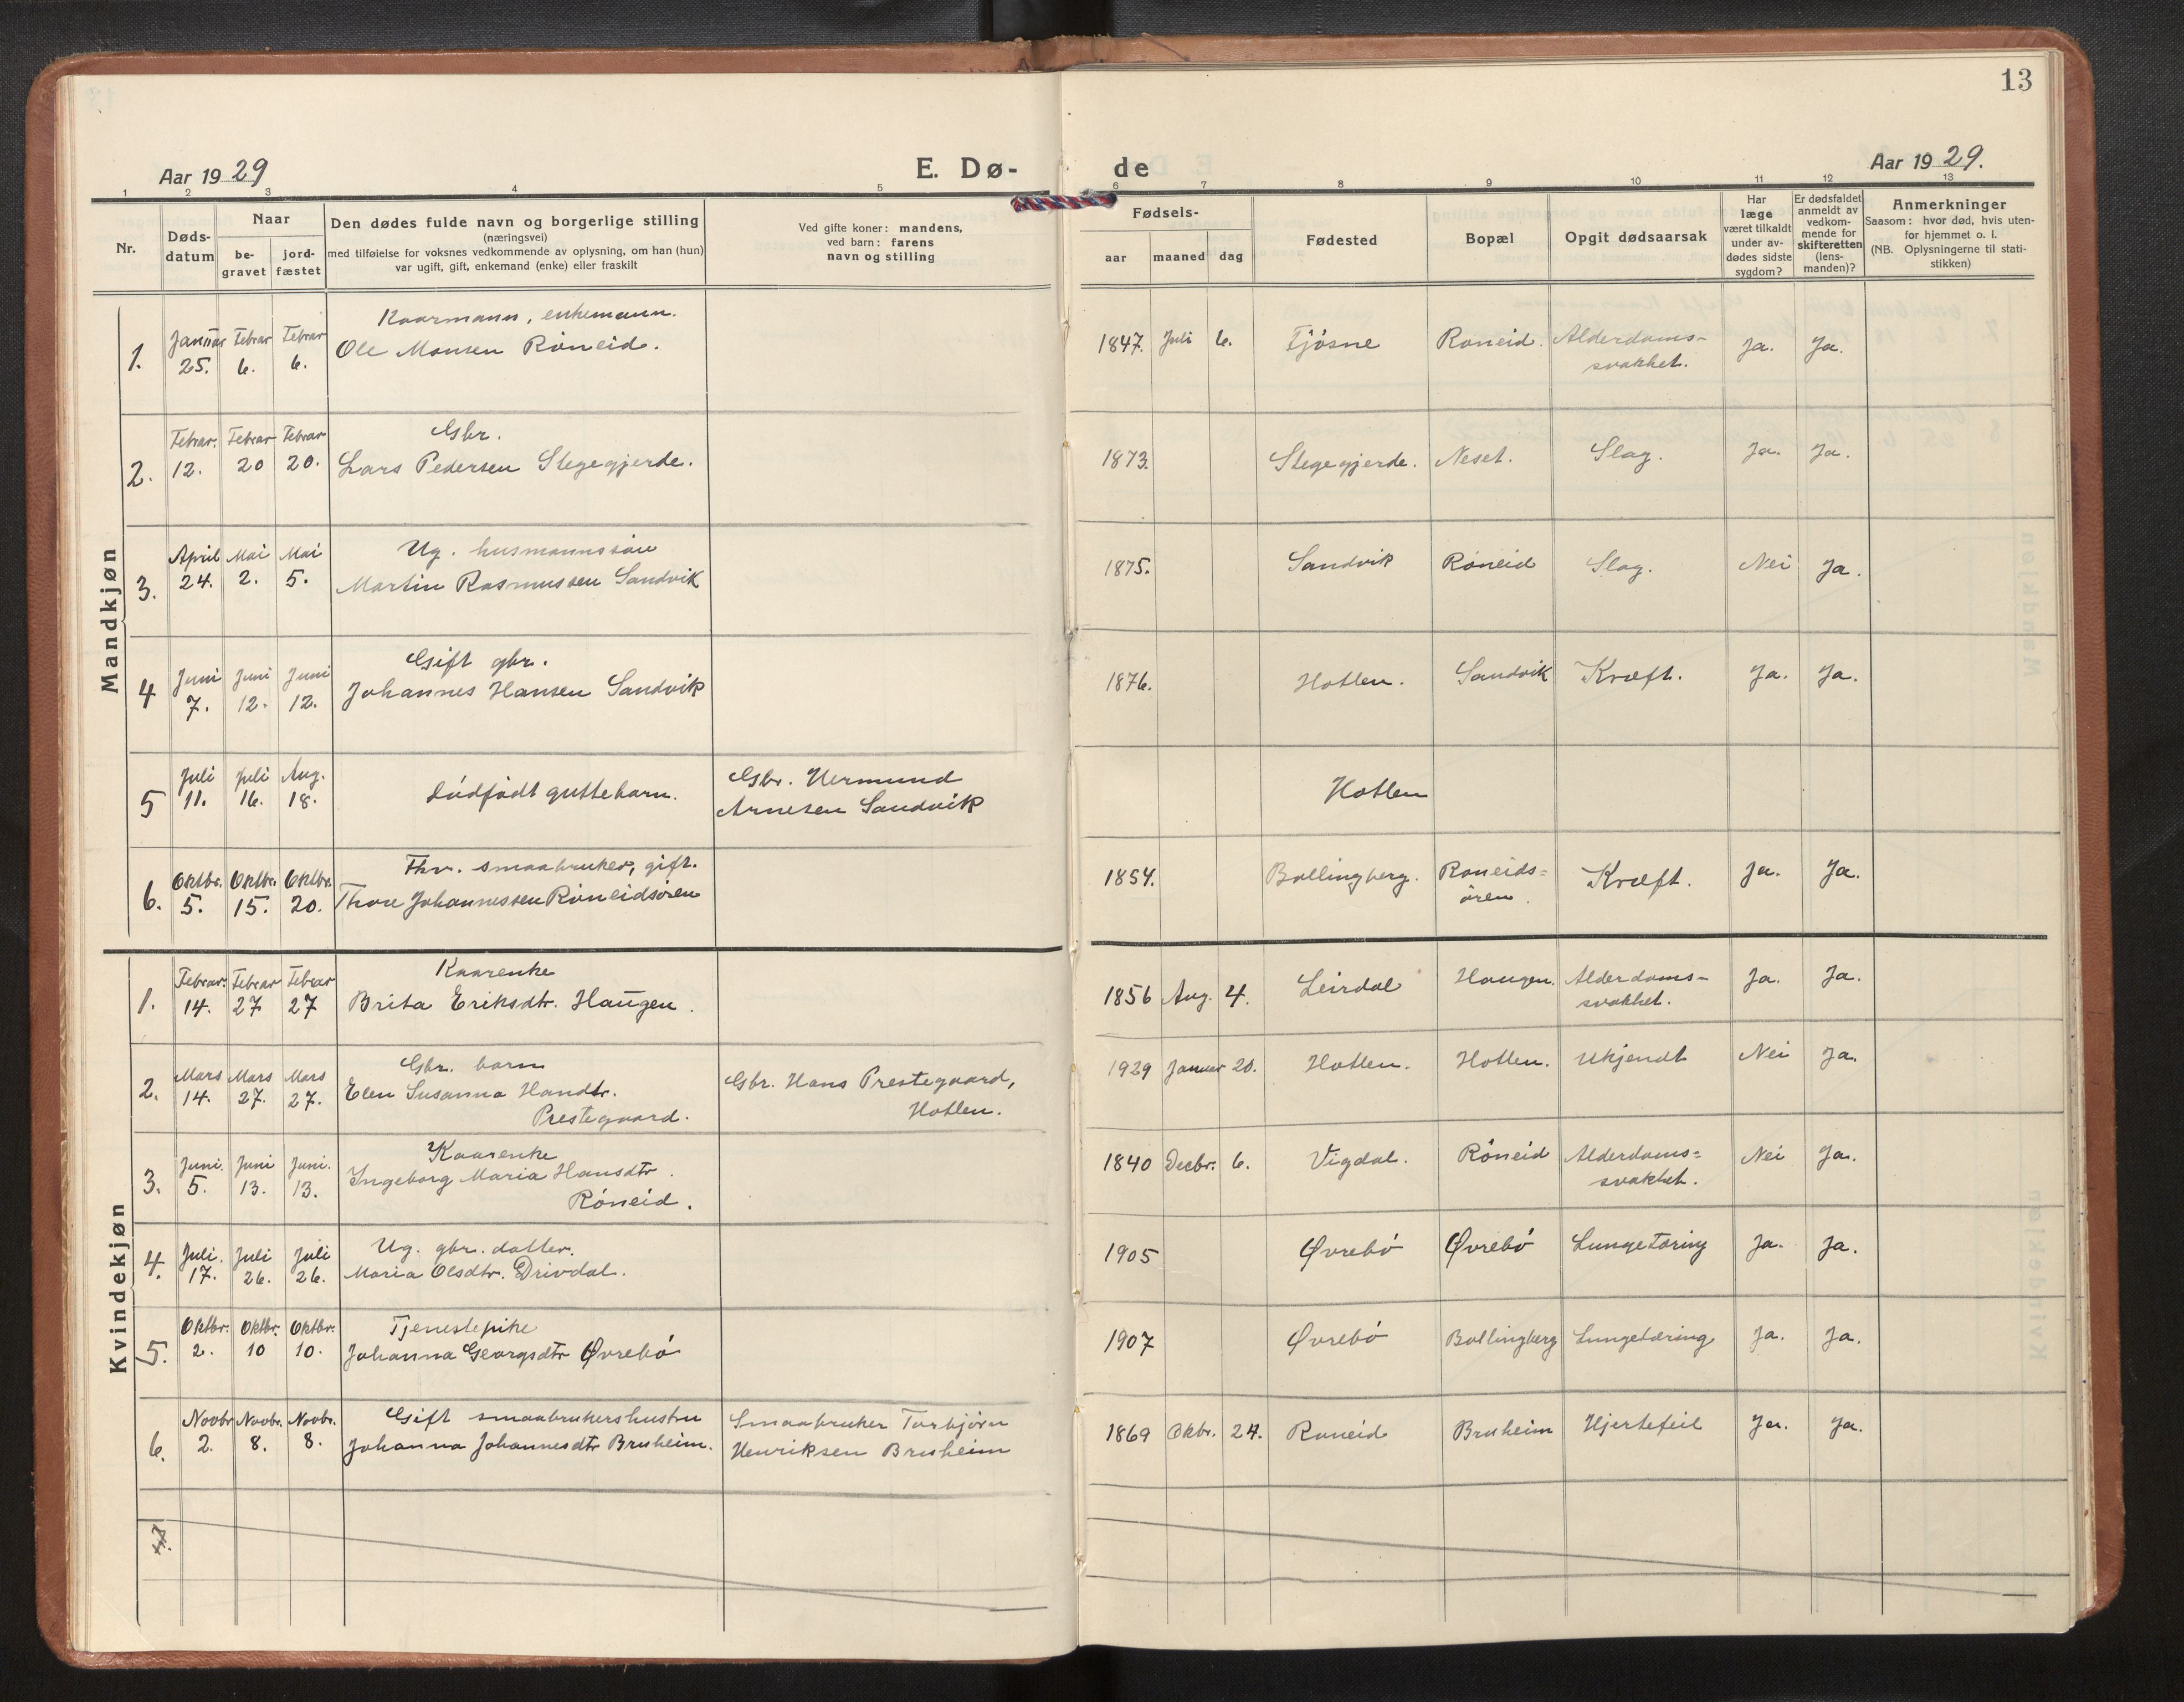 13
Aar 1929
E. Dø-
de
Aar 1929.
1 2 3 4 5 6 7 8 9 10 11 12 13
Nr.
Døds-
datum
Naar
be-
gravet
jord-
fæstet
Den dødes fulde navn og borgerlige stilling
(næringsvei)
med tilføielse for voksnes vedkommende av oplysning, om han (hun)
var ugift, gift, enkemand (enke) eller fraskilt
Ved gifte koner: mandens,
ved barn: farens
navn og stilling
Fødsels-
aar maaned dag
Fødested
Bopæl
Opgit dødsaarsak
Har
læge
været tilkaldt
under av-
dødes sidste
sygdom?
Er dødsfaldet
anmeldt av
vedkom-
mende for
skifteretten
(lens-
manden)?
Anmerkninger
Saasom: hvor død, hvis uten-
for hjemmet o. l.
(NB. Oplysningerne til stati-
stikken)
Mandkjøn
Kaarmann, enkemann.
1. Januar 25. Febrar 6. Febrar 6. Ole Monsen Røneid. 1847. Juli 6. Fjøsne Roneid. Alderdoms-
svakhet. Ja. Ja.
Gbr.
2. Febrar. 12. Febrar 20 Febrar 20. Lars Pedersen Stegegjerde. 1873. Stegegjerde. Neset. Slag. Ja. Ja.
Ug. husmannssøn
3. April 24. Mai 2. Mai 5. Martin Rasmussen Sandvik 1875. Sandvik Røneid Slag. Nei Ja.
Gift gbr.
4 Juni 7. Juni 12. Juni 12. Johannes Hansen Sandvik 1876. Hollen. Sandvik Kræft. Ja. Ja.
5 Juli 11. Juli 16. Aug. 18. Dødfødt guttebarn. Gbr. Hermund
Arnesen Sandvik Hollen
Fhv. smaabruker, gift.
6. Oktbr. 5. Oktbr. 15. Oktbr. 20. Thore Johannessen Røneidsøren 1854. Bollingberg. Roneids-
øren. Kræft. Ja. Ja.
Kvindekjøn
Kaarenke
1. Febrar. 14. Febrar 27 Febrar 27 Brita Eriksdtr. Haugen. 1856 Aug. 4. Leirdal Haugen. Alderdoms-
svakhet. Ja. Ja.
Gbr. barn
2. Mars 14. Mars 27. Mars 27. Elen Susanna Handtr.
Prestegaard. Gbr. Hans Prestegaard,
Hollen. 1929 Januar 20. Hollen. Hollen. Ukjendt Nei Ja.
Kaarenke
3. Juni. 5. Juni 13. Juni. 13. Ingeborg Maria Hansdtr.
Røneid. 1840 Decbr. 6. Vigdal. Røneid Alderdoms-
svakhet. Nei Ja.
Ug. gbr. datter.
4. Juli. 17. Juli 26. Juli 26. Maria Olsdtr. Drivdal. 1905 Øvrebø Øvrebø Lungetæring Ja. Ja.
Tjenestepike
5. Oktbr. 2. Oktbr. 10 Oktbr. 10. Johanna Georgsdtr Øvrebø 1907 Øvrebø Bollingberg Lungetæring Ja. Ja.
Gift smaabrukershustru
6. Novbr 2. Novbr. 8. Novbr. 8. Johanna Johannesdtr Bruheim. Smaabruker Torbjørn
Henriksen Bruheim 1869 Okbr. 24. Roneid Bruheim Hjertefeil Ja. Ja.